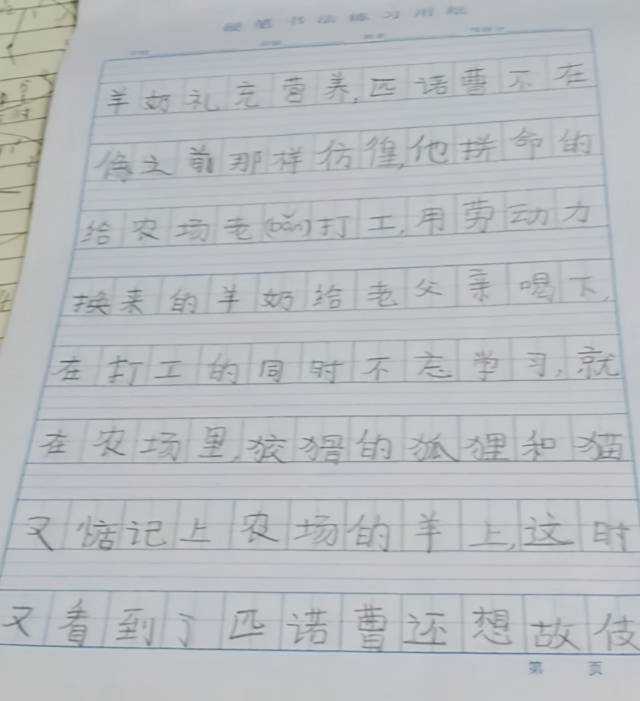 硬笔书法练习用纸
羊奶礼充营养,匹诺曹不在
像之前那样仿徨,他拼命的
给农场老(bǎn)打工,用劳动力
换来的羊奶给老父亲喝下,
在打工的同时不忘学习,就
在农场里,狡猾的狐狸和猫
又惦记上农场的羊上,这时
又看到了匹诺曹还想故伎
第 页